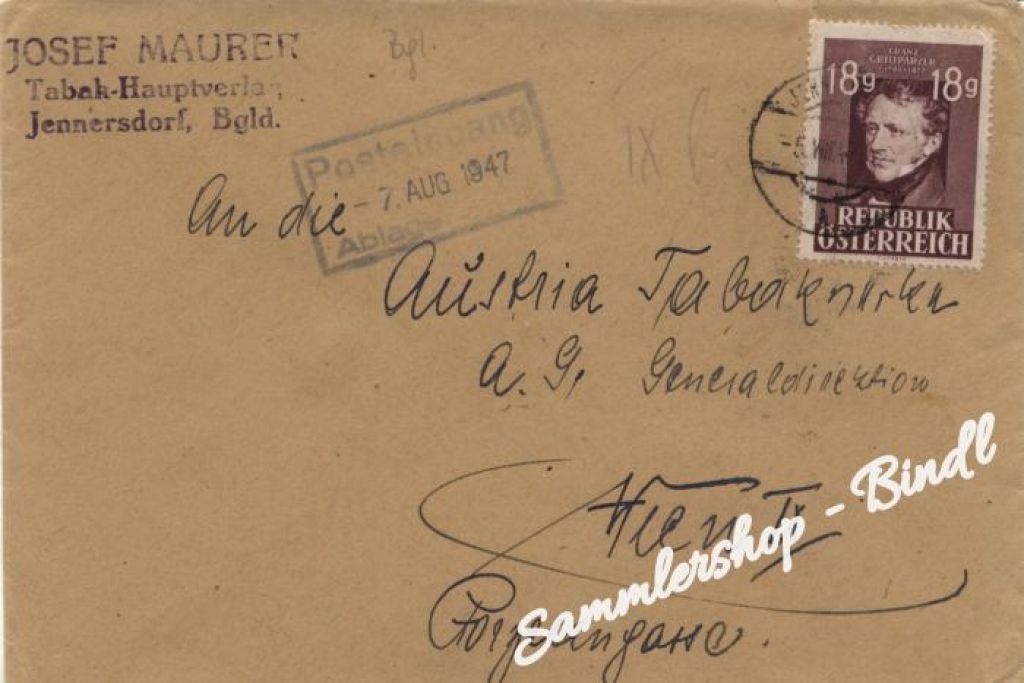 JOSEF MAURER
Tabak-Hauptverlag,
Jennersdorf, Bgld.
Bgl.
Posteingang
- 7. AUG 1947
Ablage
IX b
FRANZ
GRILLPARZER
18g 18g
REPUBLIK
ÖSTERREICH
An die
Austria Tabakwerke
A. G. Generaldirektion
Wien
Porzellangasse.
Sammlershop - Bindl